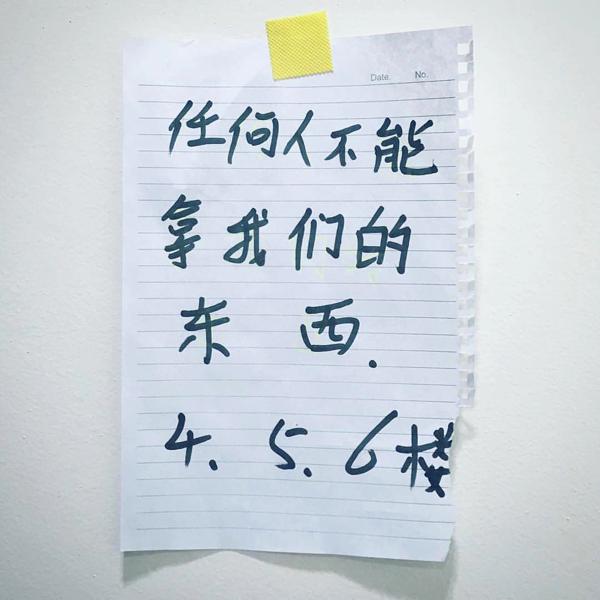 Date. No.
任何人不能
拿我们的
东 西.
4. 5. 6楼